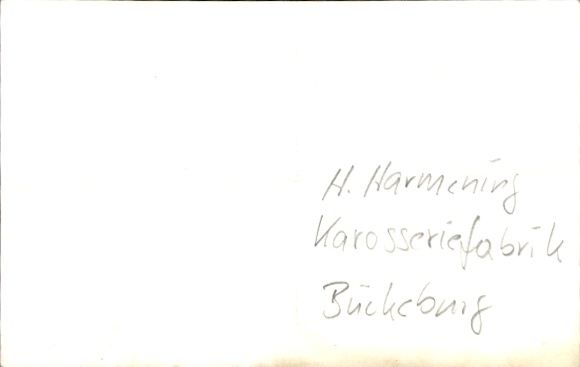 H. Harmening
Karosseriefabrik
Bückeburg